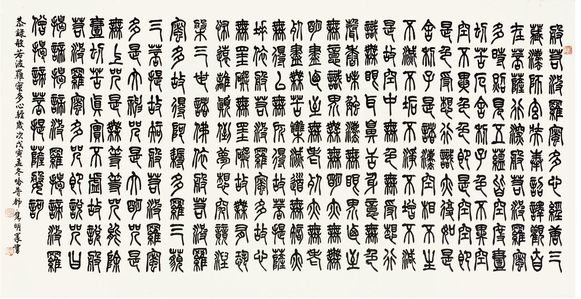 般若波羅蜜多心經唐三
藏法師玄奘奉詔譯觀音
在菩薩行深般若波羅蜜
多時照見五蘊皆空度壹
切苦厄舍利子色不異空
空不異色色即是空空即
是色受想行識亦復如是
舍利子是諸法空相不生
不滅不垢不淨不增不減
是故空中無色無受想行
識無眼耳鼻舌身意無色
聲香味觸法無眼界乃至
無意識界無無明亦無無
明盡乃至無老死亦無老
死盡無苦集滅道無智亦
無得以無所得故菩提薩
埵依般若波羅蜜多故心
無罣礙無罣礙故無有恐
怖遠離顛倒夢想究竟涅
槃三世諸佛依般若波羅
蜜多故得阿耨多羅三藐
三菩提故知般若波羅蜜
多是大神咒是大明咒是
無上咒是無等等咒能除
壹切苦真實不虛故說般
若波羅蜜多咒即說咒曰
揭諦揭諦波羅揭諦波羅
僧揭諦菩提薩婆訶
恭録般若波羅蜜多心經歲次戊寅孟冬明篆書